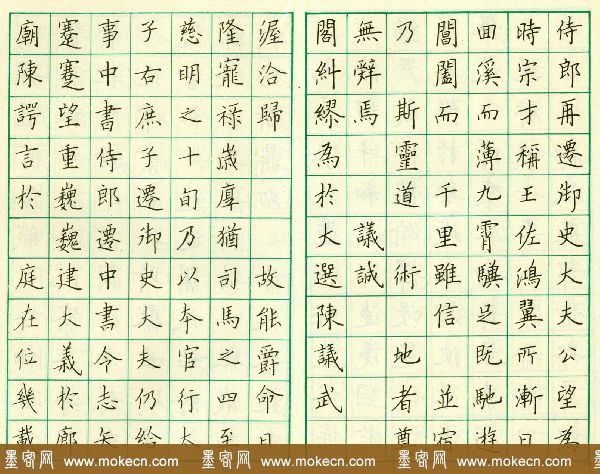 侍郎再遷御史大夫公望為
時宗才稱王佐鴻翼所漸日
回溪而薄九霄驥足既馳遊
閶闔而千里雖信並宿
乃斯靈道術地者尊
無舜焉議誠
閣糾繆為於大選陳議武
渥洽歸故能爵命日
隆寵祿歲厚猶司馬之四至
慈明之十旬乃以本官行太
子右庶子遷御史大夫仍給
事中書侍郎遷中書令志矢
蹇蹇望重巍巍建大義於廊
廟陳諤言於庭在位幾載
墨客网 www.mokecn.com 墨客网 www.mokecn.com 墨客网 www.mokecn.com